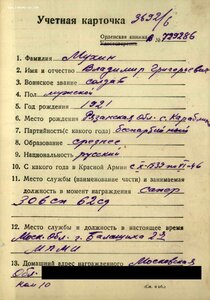 Учетная карточка 3692/6
Орденская книжка
А № 739286
1. Фамилия Мухин
2. Имя и отчество Владимир Григорьевич
3. Воинское звание солдат
4. Пол мужской
5. Год рождения 1921
6. Место рождения Рязанская обл. с. Карабли
7. Партийность (с какого года) беспартийный
8. Образование среднее
9. Национальность русский
10. С какого года в Красной Армии с
11. Место службы (наименование части) и занимаемая
должность в момент награждения Сапер
62сд
12. Место службы и должность в настоящее время
Моск. Обл. г. Балашиха
13. Домашний адрес награжденного Московская
Обл.
Ком 10
(См. н об.)